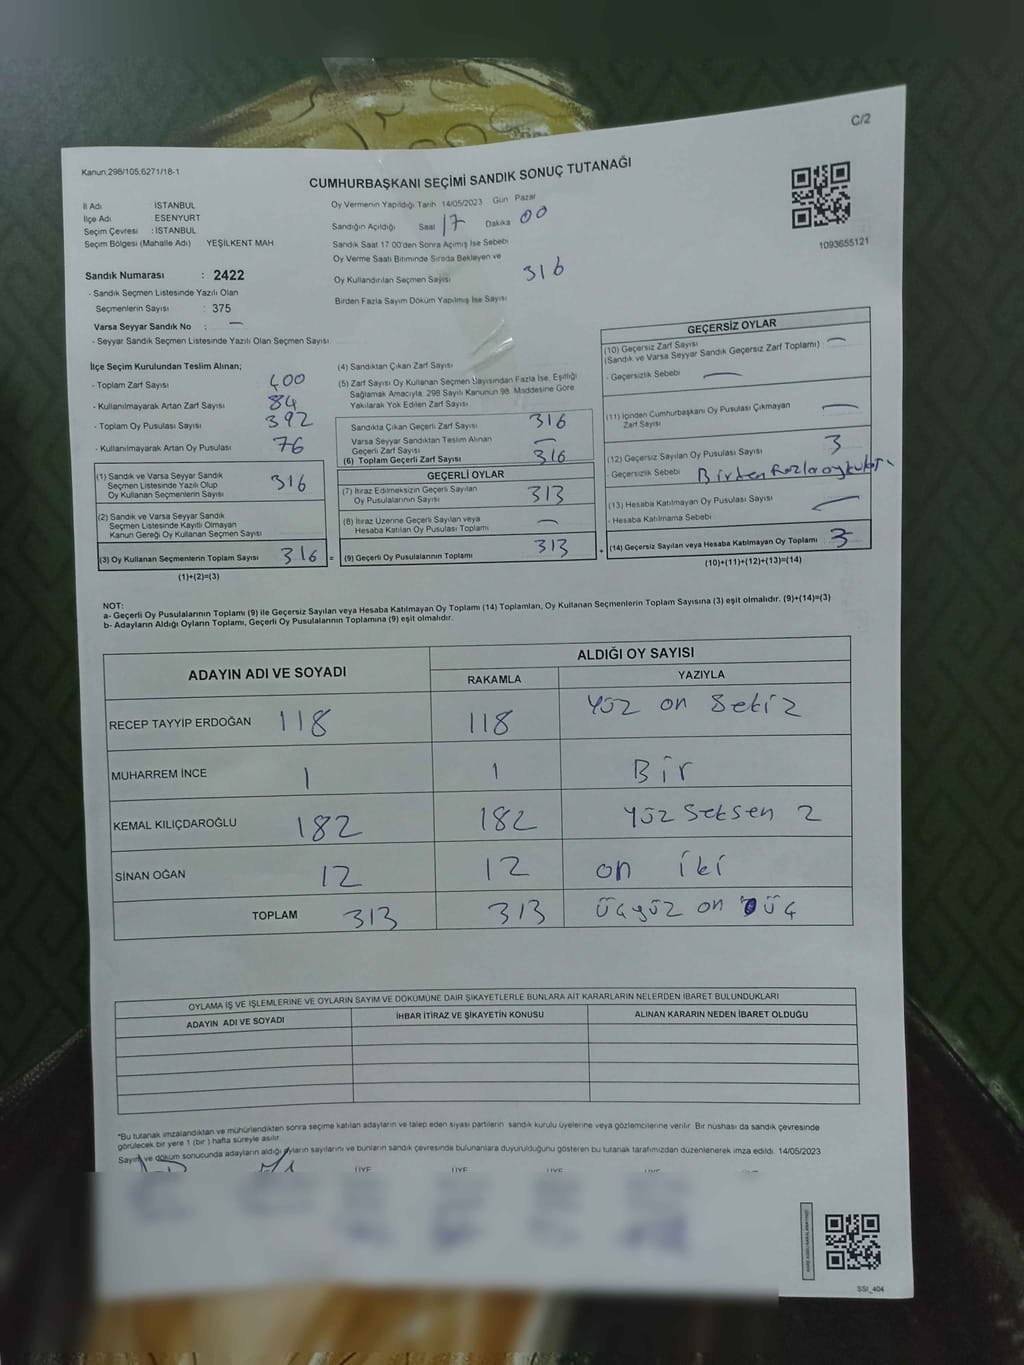 C/2
Kanun.298/105,6271/18-1
CUMHURBAŞKANI SEÇİMİ SANDIK SONUÇ TUTANAĞI
İl Adı İSTANBUL
İlçe Adı ESENYURT
Seçim Çevresi : İSTANBUL
Seçim Bölgesi (Mahalle Adı) YEŞİLKENT MAH
Sandık Numarası : 2422
- Sandık Seçmen Listesinde Yazılı Olan
Seçmenlerin Sayısı : 375
Varsa Seyyar Sandık No : —
- Seyyar Sandık Seçmen Listesinde Yazılı Olan Seçmen Sayısı
Oy Vermenin Yapıldığı Tarih 14/05/2023 Gün Pazar
Sandığın Açıldığı Saat 17 Dakika 00
Sandık Saat 17 00'den Sonra Açımış İse Sebebi
Oy Verme Saati Bitiminde Sırada Bekleyen ve
Oy Kullandırılan Seçmen Sayısı 316
Birden Fazla Sayım Döküm Yapılmış İse Sayısı
1093655121
İlçe Seçim Kurulundan Teslim Alınan;
- Toplam Zarf Sayısı 400
- Kullanılmayarak Artan Zarf Sayısı 84
- Toplam Oy Pusulası Sayısı 392
- Kullanılmayarak Artan Oy Pusulası 76
(1) Sandık ve Varsa Seyyar Sandık
Seçmen Listesinde Yazılı Olup
Oy Kullanan Seçmenlerin Sayısı 316
(2) Sandık ve Varsa Seyyar Sandık
Seçmen Listesinde Kayıtlı Olmayan
Kanun Gereği Oy Kullanan Seçmen Sayısı
(3) Oy Kullanan Seçmenlerin Toplam Sayısı 316 =
(1)+(2)=(3)
(4) Sandıktan Çıkan Zarf Sayısı
(5) Zarf Sayısı Oy Kullanan Seçmen Sayısından Fazla İse, Eşitliği
Sağlamak Amacıyla, 298 Sayılı Kanunun 98. Maddesine Göre
Yakılarak Yok Edilen Zarf Sayısı
Sandıkta Çıkan Geçerli Zarf Sayısı 316
Varsa Seyyar Sandıktan Teslim Alınan
Geçerli Zarf Sayısı —
(6) Toplam Geçerli Zarf Sayısı 316
GEÇERLİ OYLAR
(7) İtiraz Edilmeksizin Geçerli Sayılan
Oy Pusulalarının Sayısı 313
(8) İtiraz Üzerine Geçerli Sayılan veya
Hesaba Katılan Oy Pusulası Toplamı —
(9) Geçerli Oy Pusulalarının Toplamı 313 +
GEÇERSİZ OYLAR
(10) Geçersiz Zarf Sayısı
(Sandık ve Varsa Seyyar Sandık Geçersiz Zarf Toplamı) : —
- Geçersizlik Sebebi —
(11) İçinden Cumhurbaşkanı Oy Pusulası Çıkmayan
Zarf Sayısı —
(12) Geçersiz Sayılan Oy Pusulası Sayısı 3
- Geçersizlik Sebebi Birden fazla oy
(13) Hesaba Katılmayan Oy Pusulası Sayısı —
- Hesaba Katılmama Sebebi
(14) Geçersiz Sayılan veya Hesaba Katılmayan Oy Toplamı 3
(10)+(11)+(12)+(13)=(14)
NOT:
a- Geçerli Oy Pusulalarının Toplamı (9) ile Geçersiz Sayılan veya Hesaba Katılmayan Oy Toplamı (14) Toplamları, Oy Kullanan Seçmenlerin Toplam Sayısına (3) eşit olmalıdır. (9)+(14)=(3)
b- Adayların Aldığı Oyların Toplamı, Geçerli Oy Pusulalarının Toplamına (9) eşit olmalıdır.
ADAYIN ADI VE SOYADI ALDIĞI OY SAYISI
RAKAMLA YAZIYLA
RECEP TAYYİP ERDOĞAN 118 118 Yüz on Sekiz
MUHARREM İNCE 1 1 Bir
KEMAL KILIÇDAROĞLU 182 182 Yüz Seksen 2
SİNAN OĞAN 12 12 on iki
TOPLAM 313 313 üçyüz on üç
OYLAMA İŞ VE İŞLEMLERİNE VE OYLARIN SAYIM VE DÖKÜMÜNE DAİR ŞİKAYETLERLE BUNLARA AİT KARARLARIN NELERDEN İBARET BULUNDUKLARI
ADAYIN ADI VE SOYADI İHBAR İTİRAZ VE ŞİKAYETİN KONUSU ALINAN KARARIN NEDEN İBARET OLDUĞU
*Bu tutanak imzalandıktan ve mühürlendikten sonra seçime katılan adayların ve talep eden siyasi partilerin sandık kurulu üyelerine veya gözlemcilerine verilir. Bir nüshası da sandık çevresinde
görülecek bir yere 1 (bir ) hafta süreyle asılır.
Sayım ve döküm sonucunda adayların aldığı oyların sayılarını ve bunların sandık çevresinde bulunanlara duyurulduğunu gösteren bu tutanak tarafımızdan düzenlenerek imza edildi. 14/05/2023
ÜYE ÜYE ÜYE ÜYE
SSI_404